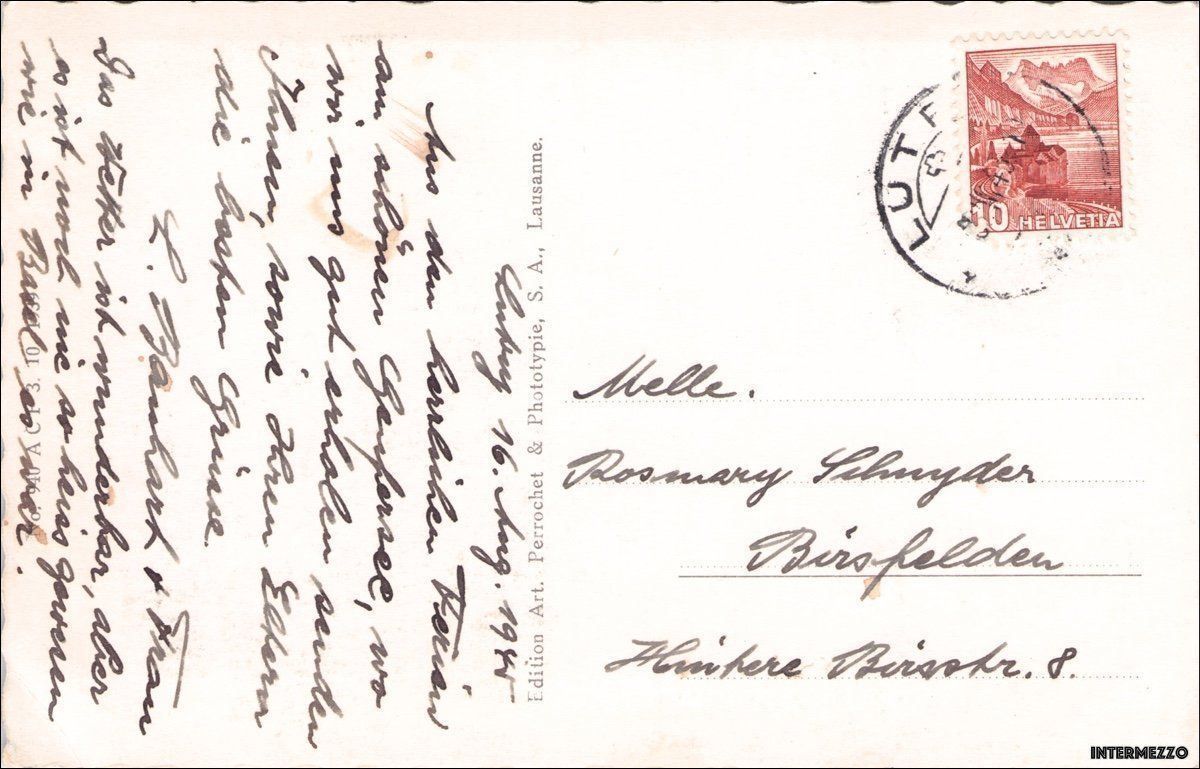 Lutry 16. Aug. 1944
Aus den herrlichen Ferien
am schönen Genfersee, wo
wir uns gut erholen senden
Ihnen, sowie Ihren Eltern
die besten Grüsse.
L. Bänhart & Frau
Das Wetter ist wunderbar, aber
es ist noch nie so heiss gewesen
wie in Basel es war.
Edition Art. Perrochet & Phototypie, S. A., Lausanne.
LUTR
10 HELVETIA
Melle.
Rosmary Schnyder
Birsfelden
Hintere Birsstr. 8.
INTERMEZZO